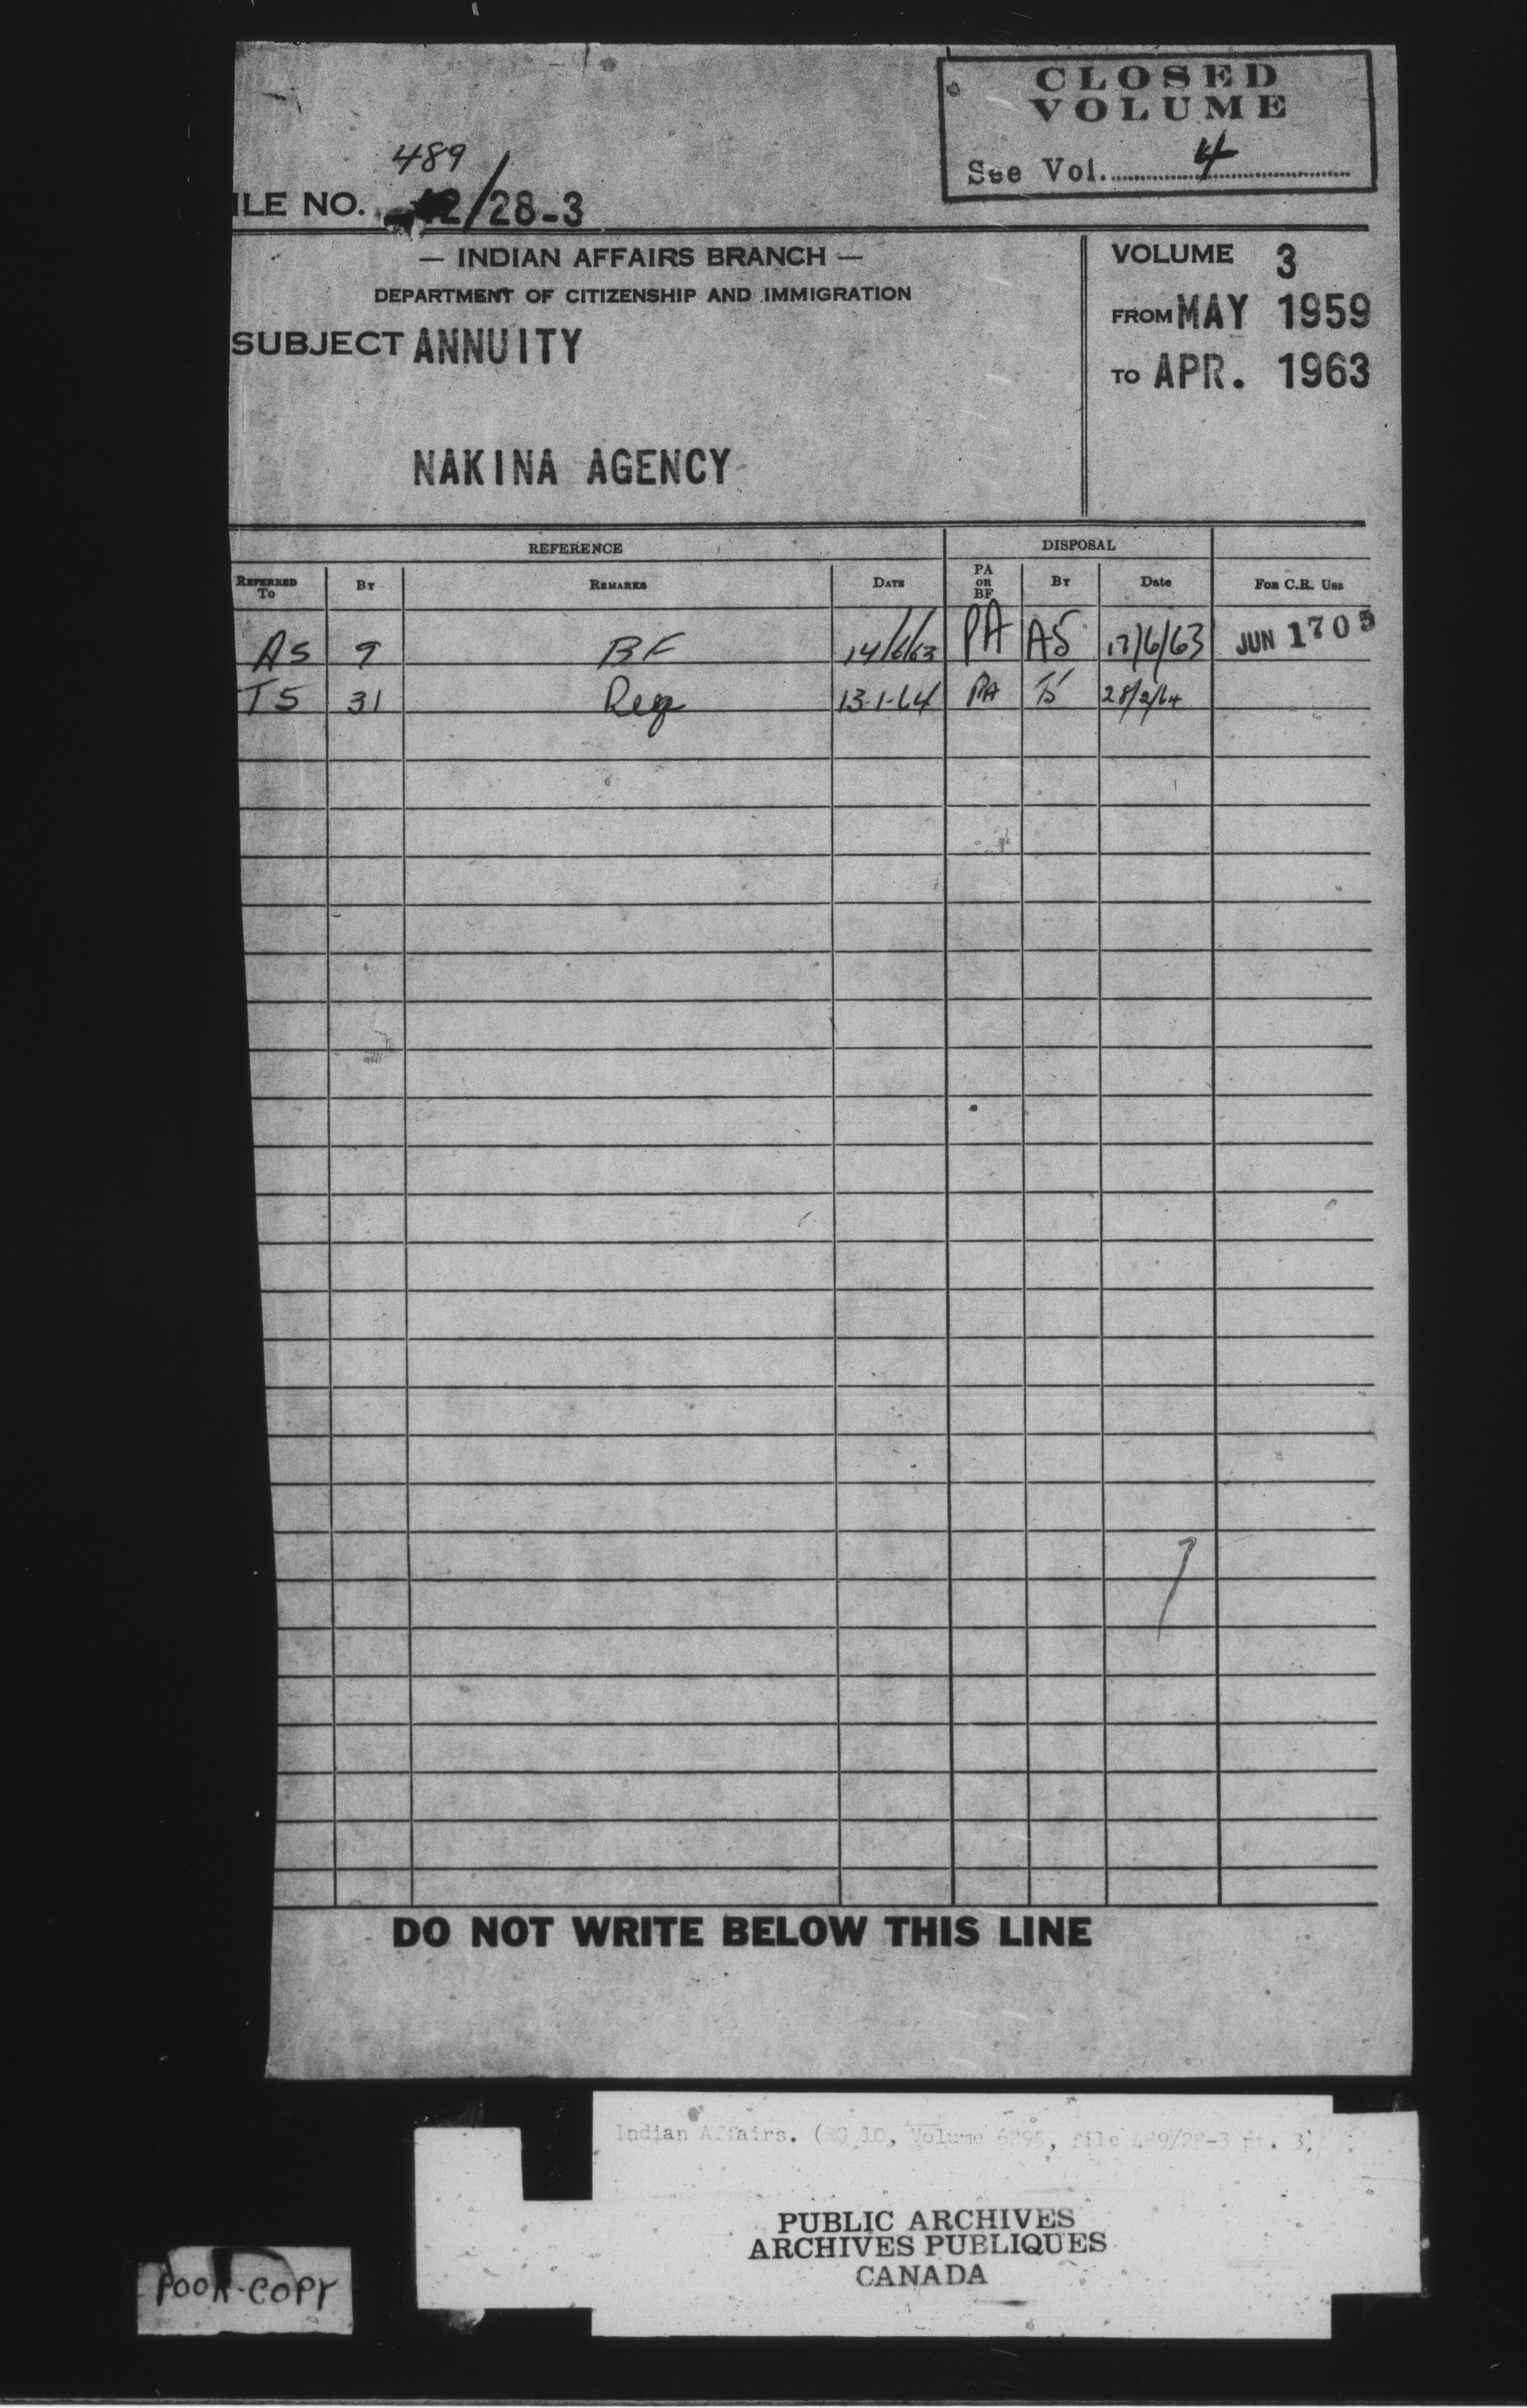 CLOSED
VOLUME
See Vol. 4
489
ILE NO. 2/28-3
— INDIAN AFFAIRS BRANCH —
DEPARTMENT OF CITIZENSHIP AND IMMIGRATION
SUBJECT ANNUITY
NAKINA AGENCY
VOLUME 3
FROM MAY 1959
TO APR. 1963
REFERENCE DISPOSAL
REFERRED TO BY REMARKS DATE PA OR BF BY Date FOR C.R. USE
AS 9 BF 14/6/63 PA AS 17/6/63 JUN 17
TS 31 Req 13-1-64 PA TS 28/2/64
DO NOT WRITE BELOW THIS LINE
Indian Affairs. (RG 10, Volume 6895, file 489/28-3 pt. 3)
PUBLIC ARCHIVES
ARCHIVES PUBLIQUES
CANADA
POOR COPY